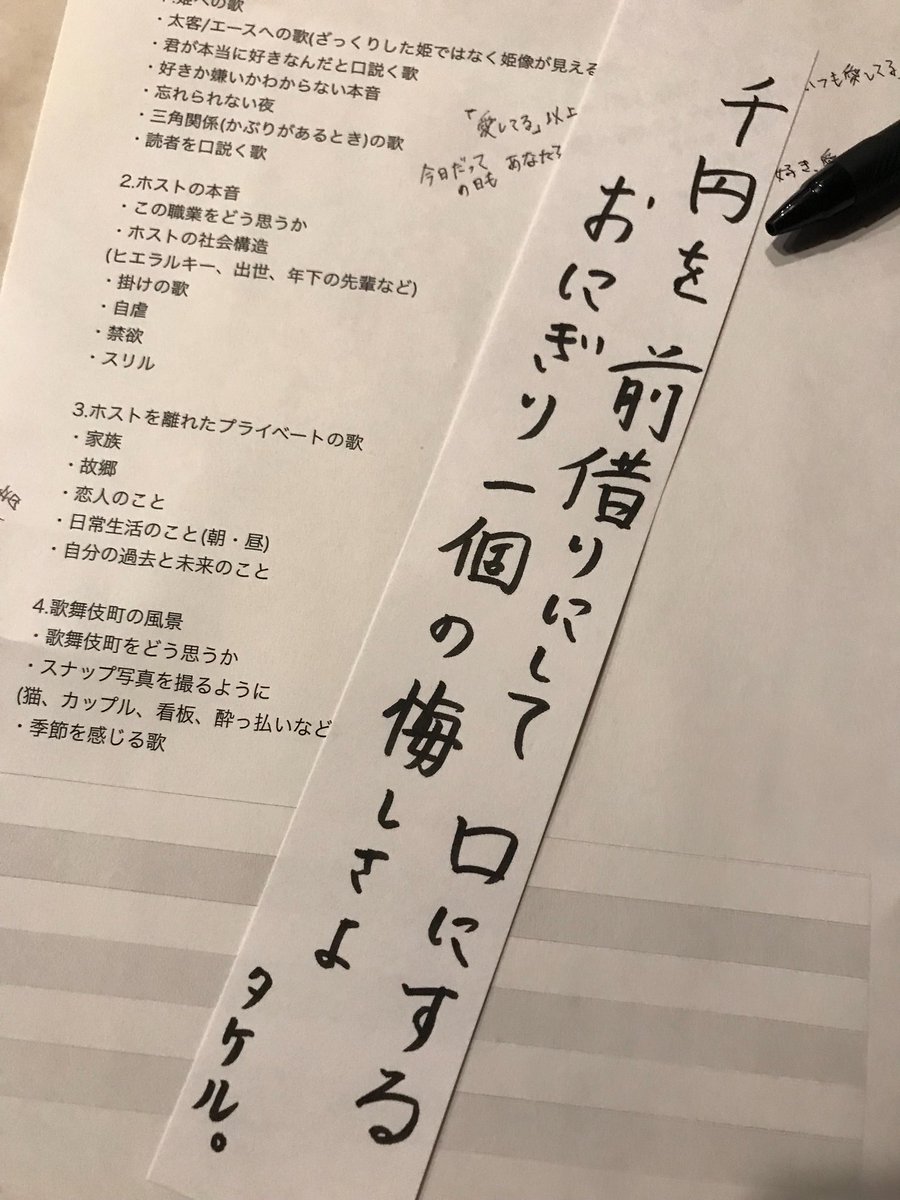 ・太客/エースへの歌(ざっくりした姫ではなく姫像が見える
・君が本当に好きなんだと口説く歌
・好きか嫌いかわからない本音
・忘れられない夜
・三角関係(かぶりがあるとき)の歌
・読者を口説く歌
2.ホストの本音
・この職業をどう思うか
・ホストの社会構造
(ヒエラルキー、出世、年下の先輩など)
・掛けの歌
・自虐
・禁欲
・スリル
3.ホストを離れたプライベートの歌
・家族
・故郷
・恋人のこと
・日常生活のこと(朝・昼)
・自分の過去と未来のこと
4.歌舞伎町の風景
・歌舞伎町をどう思うか
・スナップ写真を撮るように
(猫、カップル、看板、酔っ払いなど
・季節を感じる歌
「愛してる」以上
今日だって あなた
の日も
いつも愛してる
好き、愛
千円を前借りにして口にする
おにぎり一個の悔しさよ
タケル。